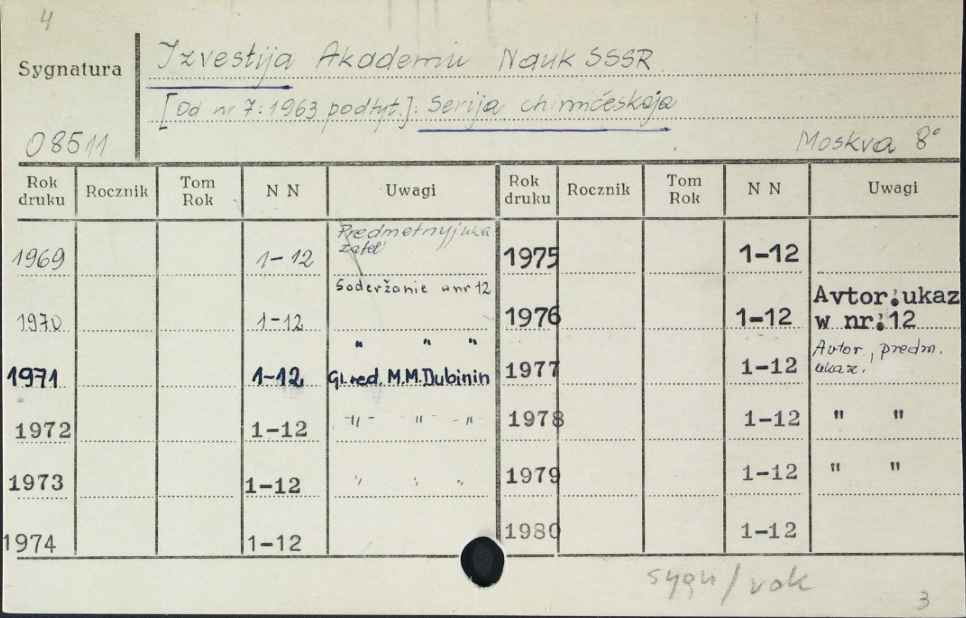 4
Sygnatura
Izvestija Akademii Nauk SSSR
[Od nr 7:1963 podtyt.]: Serija chimičeskaja
08511
Moskva 8°
Rok druku Rocznik Tom Rok N N Uwagi Rok druku Rocznik Tom Rok N N Uwagi
1969 1-12 Predmetnyj uka
zatel'
1975 1-12
Soderžanie w nr 12
1970 1-12
1976 1-12 Avtor. ukaz
w nr. 12
" " "
1971 1-12 Gl. red. M.M. Dubinin
1977 1-12 Avtor., predm.
ukaz.
1972 1-12 -"- " -"
1978 1-12 " "
1973 1-12 " " "
1979 1-12 " "
1974 1-12
1980 1-12
sygn/rok
3